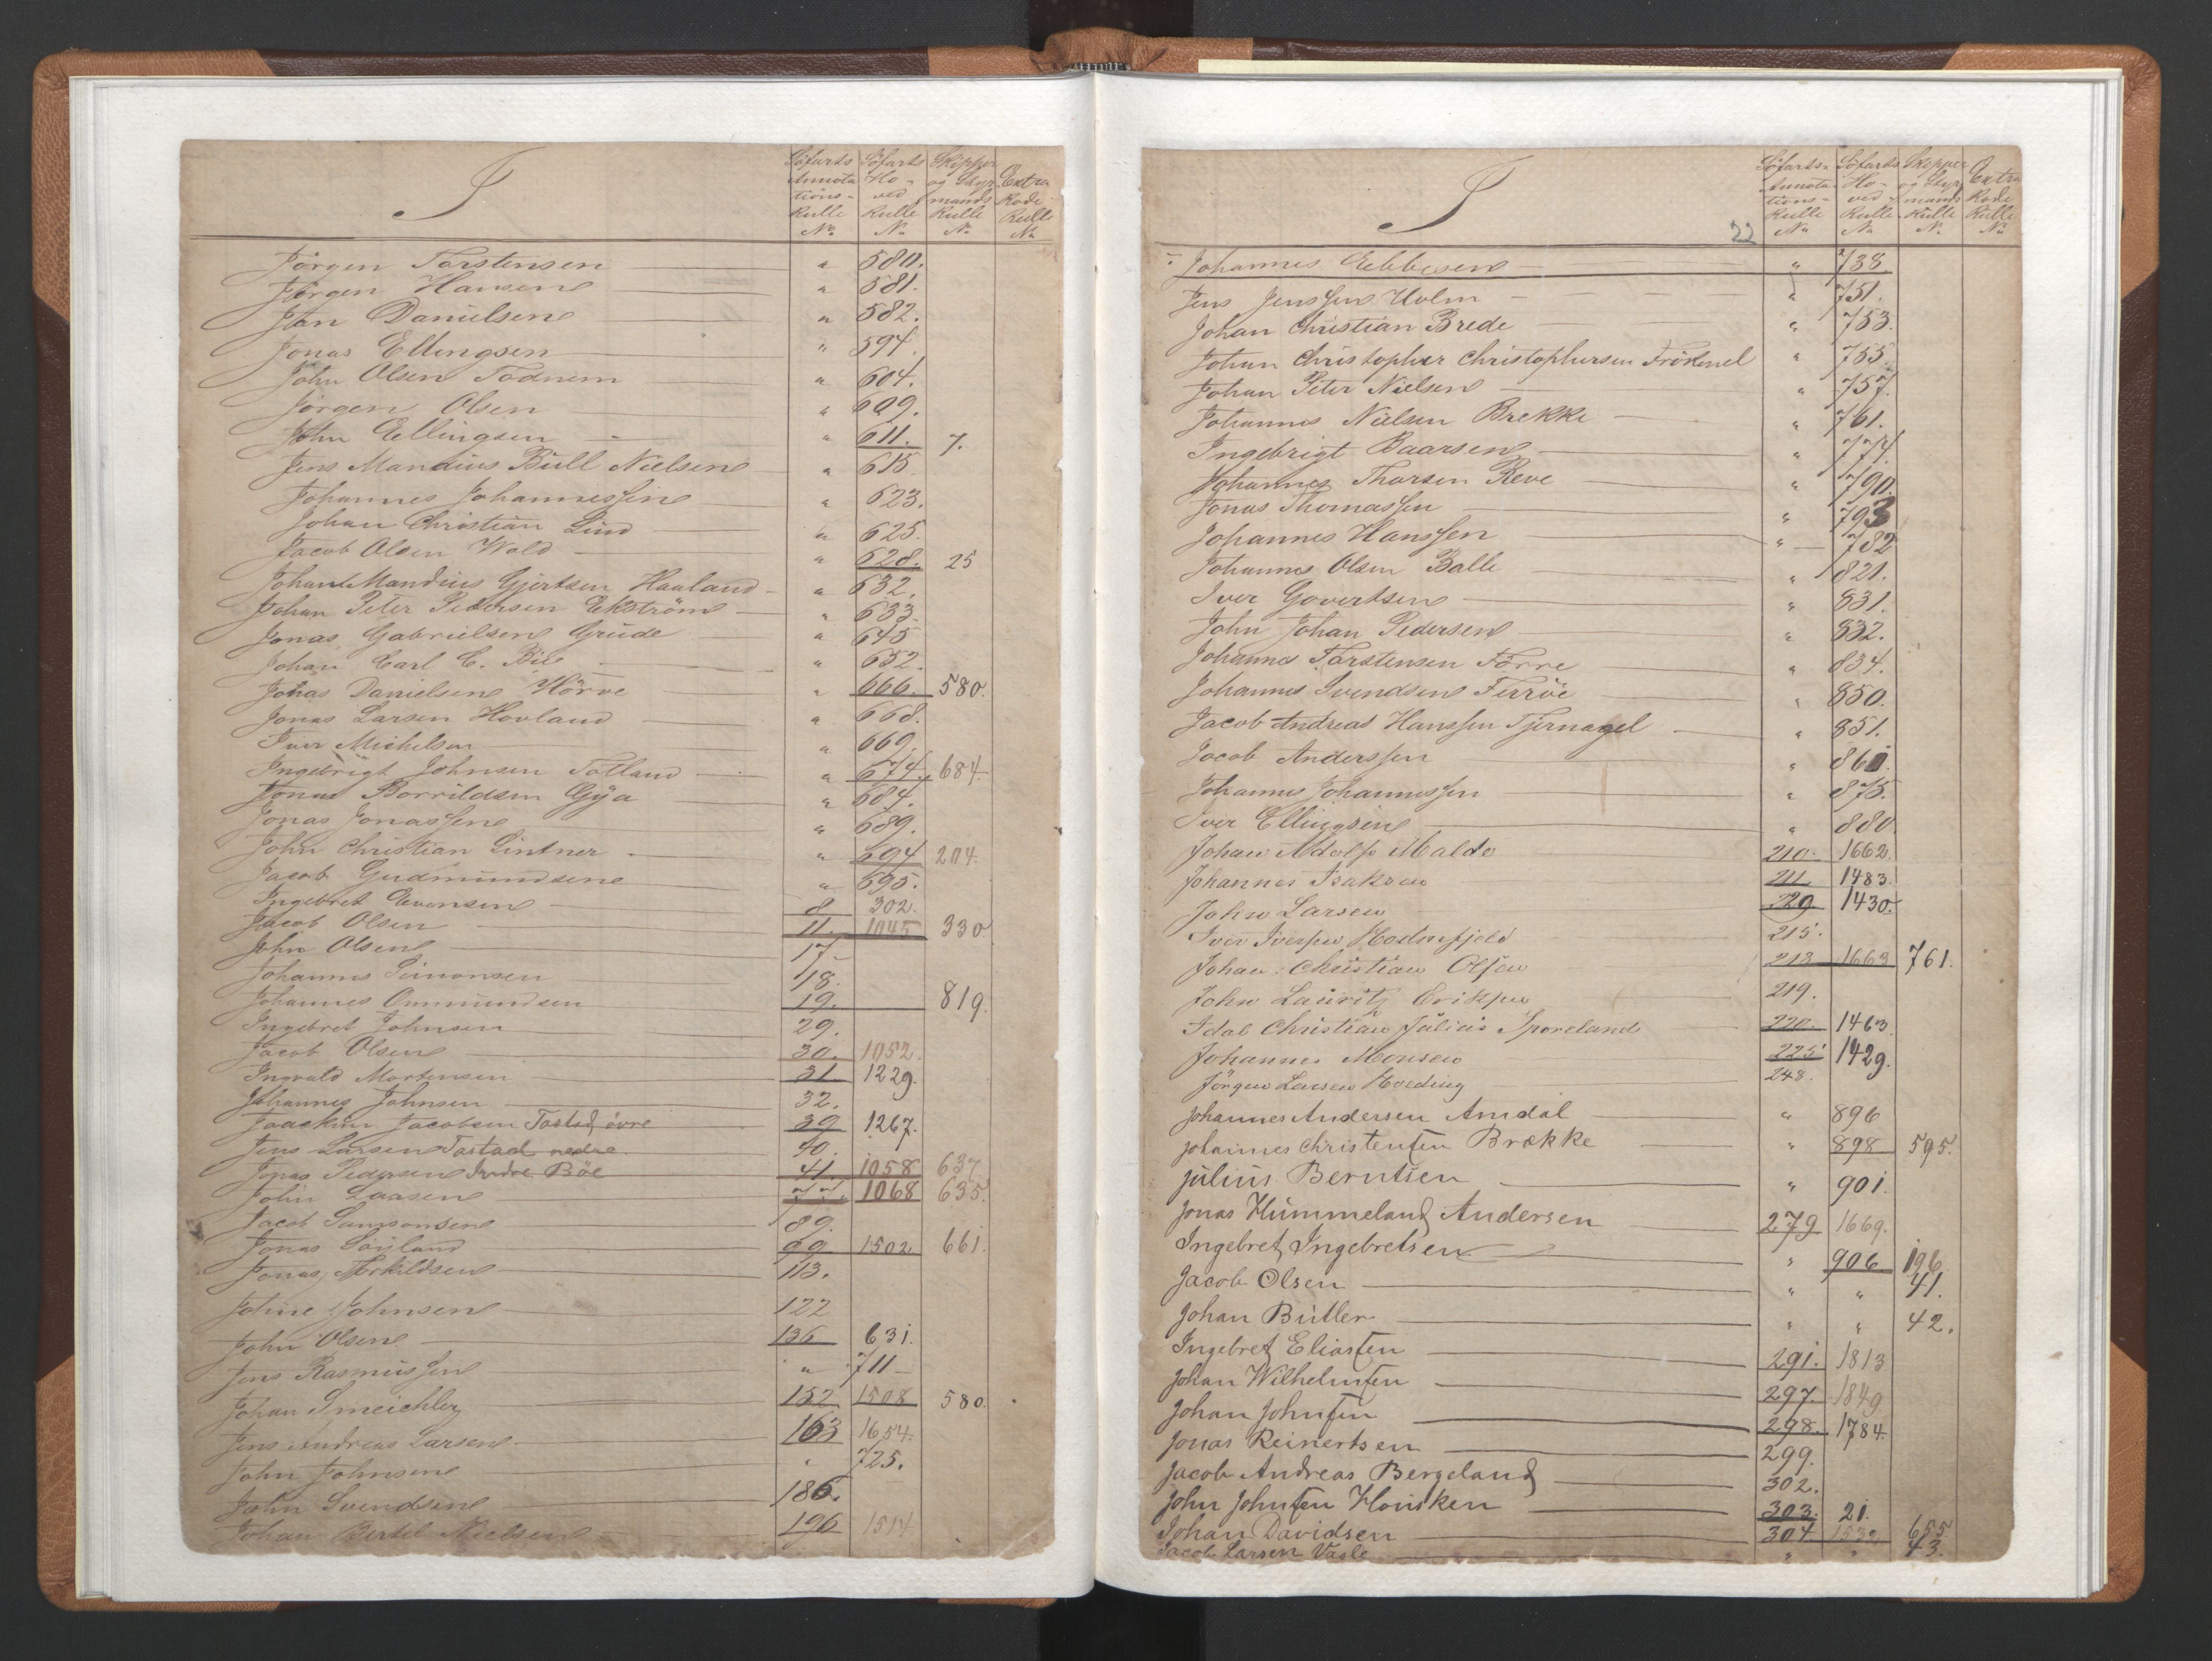 J
Söfarts Annotations-Rulle No
Söfarts Ho-ved Rulle No
Skipper og Styrmands Rulle No
Extra Rode Rulle No
Jörgen Torstensen " 580.
Jörgen Hansen " 581.
Jan Danielsen " 582.
Jonas Ellingsen " 594.
John Olsen Todnem " 604.
Jörgen Olsen " 609.
John Ellingsen " 611. 7.
Jens Mandius Bull Nielsen " 615.
Johannes Johannessen " 623.
Johan Christian Lind " 625.
Jacob Olsen Wold " 628. 25
Johan Mandius Gjertsen Haaland " 632.
Johan Peter Pedersen Ekström " 633.
Jonas Gabrielsen Grude " 645
Johan Carl C. " 652.
Jonas Danielsen Hörve " 666. 580.
Jonas Larsen Hovland " 668.
Iver Michelsen " 669.
Ingebrigt Johnsen Tolland " 674. 684.
Jonas Borrildsen Gÿa " 684.
Jonas Jonassen " 689.
John Christian Lintner " 694 204.
Jacob Gudmundsen " 695.
Ingebret Evensen 8 302.
Jacob Olsen 11. 1045 330
John Olsen 17.
Johannes Simonsen 18.
Johannes Ommundsen 19. 819.
Ingebret Johnsen 29.
Jacob Olsen 30. 1052.
Ingvald Mortensen 31 1229.
Johannes Johnsen 32.
Joachim Jacobsen Tastad övre 39 1267.
Jens Larsen Tastad nedre. 40.
Jonas Pedersen Indre Böe 41. 1058 637
John Laasen 77. 1068 635.
Jacob Samsonsen 89.
Jonas Söyland 99 1502 661.
Jonas Torkildsen 113.
Johne Johnsen 122
John Olsen 136 631.
Jens Rasmussen " 711
Johan Smeichler 152 1508 580.
Jens Andreas Larsen 163 1654.
John Johnsen " 725.
John Svendsen 186.
Johan Bertil Nielsen 196 1514
J
22
Söfarts-Annotations-Rulle No
Söfarts Ho-ved-Rulle No
Skipper og Styrmands Rulle No
Extra Rode Rulle No
Johannes Ebbesen " 738.
Jens Jenssen Holm " 751.
Johan Christian Brede " 753.
Johan Christopher Christophersen Frökenel " 755.
Johan Peter Nielsen " 757.
Johannes Nielsen Brekke " 761.
Ingebrigt Baarsen " 774.
Johannes Thorsen Reve " 790.
Jonas Thomassen " 793
Johannes Hanssen " 782
Johannes Olsen Balle " 821.
Iver Govertsen " 831.
John Johan Pedersen " 832.
Johannes Torstensen Förre " 834.
Johannes Svendsen Ferröe " 850.
Jacob Andreas Hanssen Tjernagel " 851.
Jacob Anderssen " 860.
Johannes Johannessen " 875.
Iver Ellingsen " 880
Johan Adolf Malde 210. 1662.
Johannes Isaksen 211 1483.
John Larsen 229. 1430.
Iver Iversen Hodnefjeld 215.
Johan Christian Olsen 213 1663 761.
John Lauritz Eriksen 219.
Idal Christian Julius Sporeland 220. 1463.
Johannes Monsen 225 1429.
Jörgen Larsen Hveding 248.
Johannes Andersen Amdal " 896
Johannes Christensen Brekke " 898 595.
Julius Berntsen " 901.
Jonas Hummeland Andersen 279 1669.
Ingebret Ingebretsen " 906 196.
Jacob Olsen " " 41.
Johan Butler " " 42.
Ingebret Eliassen 291. 1813
Johan Wilhelmsen 297. 1849
Johan Johnsen 298. 1784.
Jonas Reinertsen 299.
Jacob Andreas Bergeland 302.
John Johnsen Housken 303. 21.
Johan Davidsen 304 1532 655
Jacob Larsen Vasle " " 43.